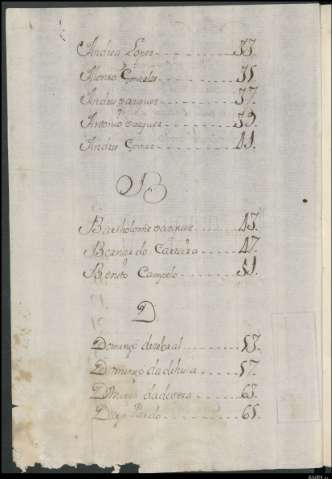 Andrea Lopez - - - - 33.
Alonso Gonzales - - - - 35
Andres Vazques - - - - 37.
Antonio Vazques - - - - 39
Andres Gomes - - - - 41.
B
Bartholome Vazques - - - - 43.
Bernardo de - - - - 47.
Benito Campelo - - - - 51.
D
Domingo de - - - - 53.
Domingo da dehesa - - - - 57.
- - - - 63.
Diego Pardo - - - - 65.